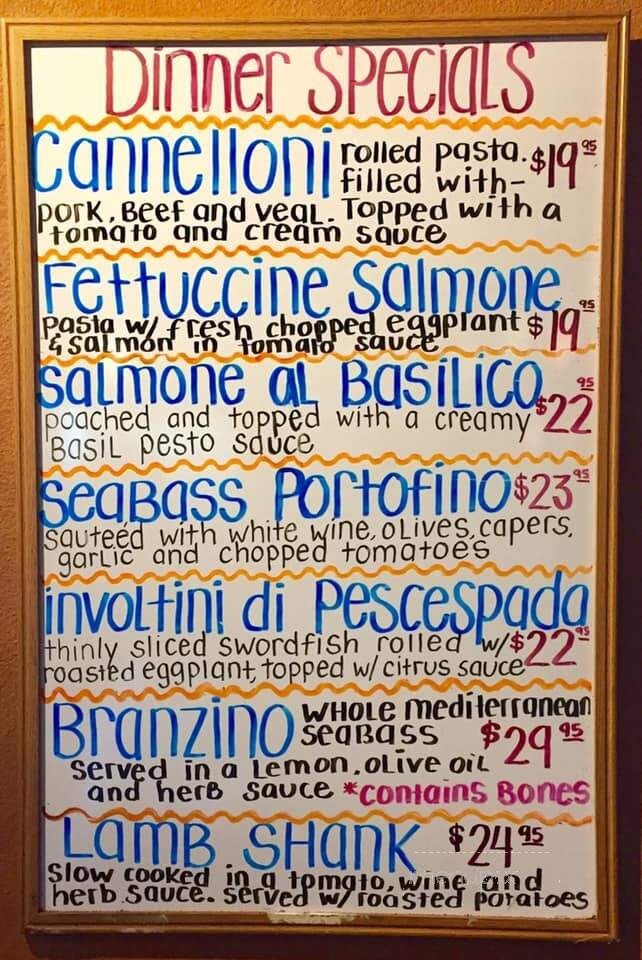 Dinner Specials
Cannelloni rolled pasta. $19.95
filled with-
pork, Beef and veal. Topped with a
tomato and cream sauce
Fettuccine Salmone
pasta w/ fresh chopped eggplant $19.95
& salmon in tomato sauce
Salmone al Basilico $22.95
poached and topped with a creamy
Basil pesto sauce
Seabass Portofino $23.95
sauteéd with white wine, olives, capers,
garlic and chopped tomatoes
involtini di Pescespada
thinly sliced swordfish rolled w/ $22.95
roasted eggplant, topped w/ citrus sauce
Branzino whole mediterranean
seabass $29.95
served in a lemon, olive oil
and herb sauce *contains Bones
Lamb Shank $24.95
slow cooked in a tomato, wine and
herb sauce. served w/ roasted potatoes